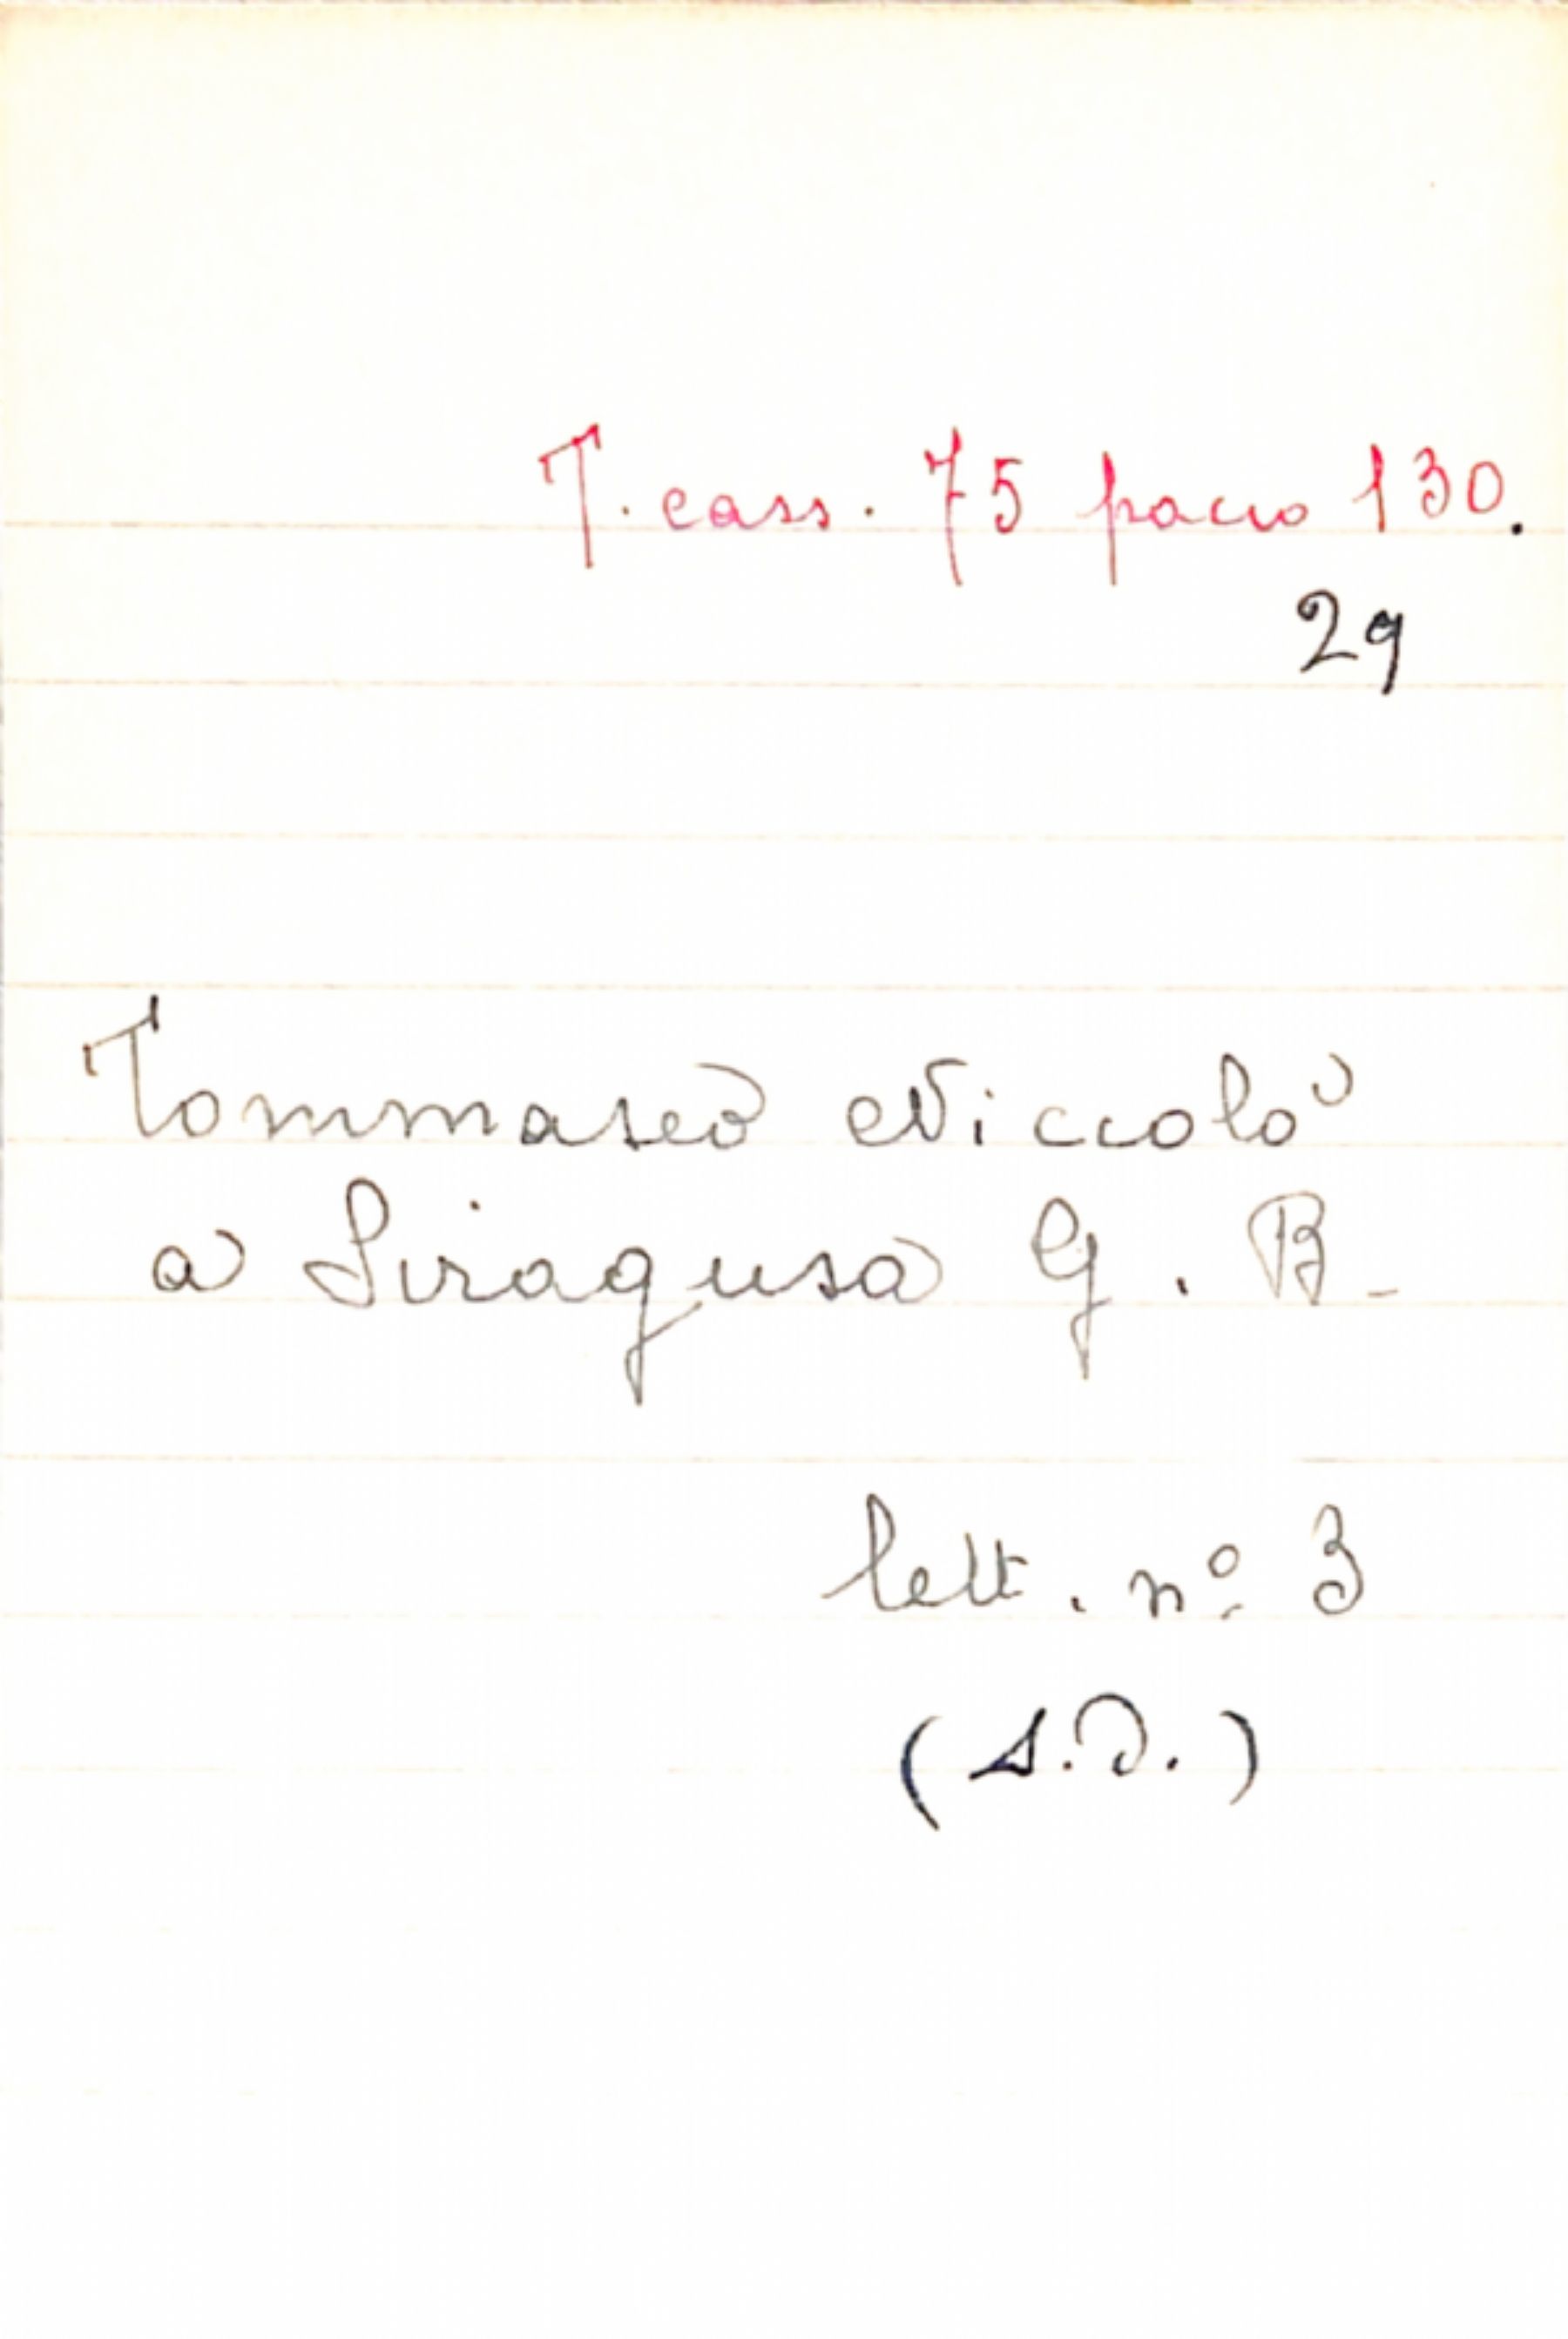 T. cass. 75 pacco 130.
29
Tommaseo Niccolò
a Siragusa G. B.
lett. nº 3
(s.d.)